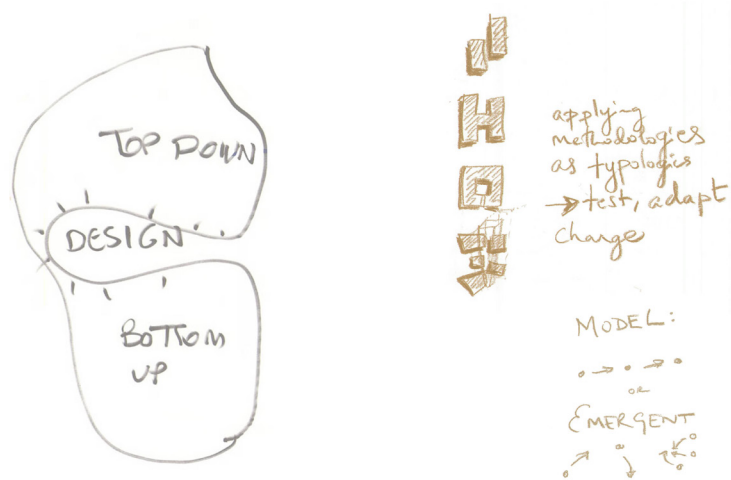 TOP DOWN
DESIGN
BOTTOM
UP
applying
methodologies
as typologies
→ test, adapt
change
MODEL:
or
EMERGENT